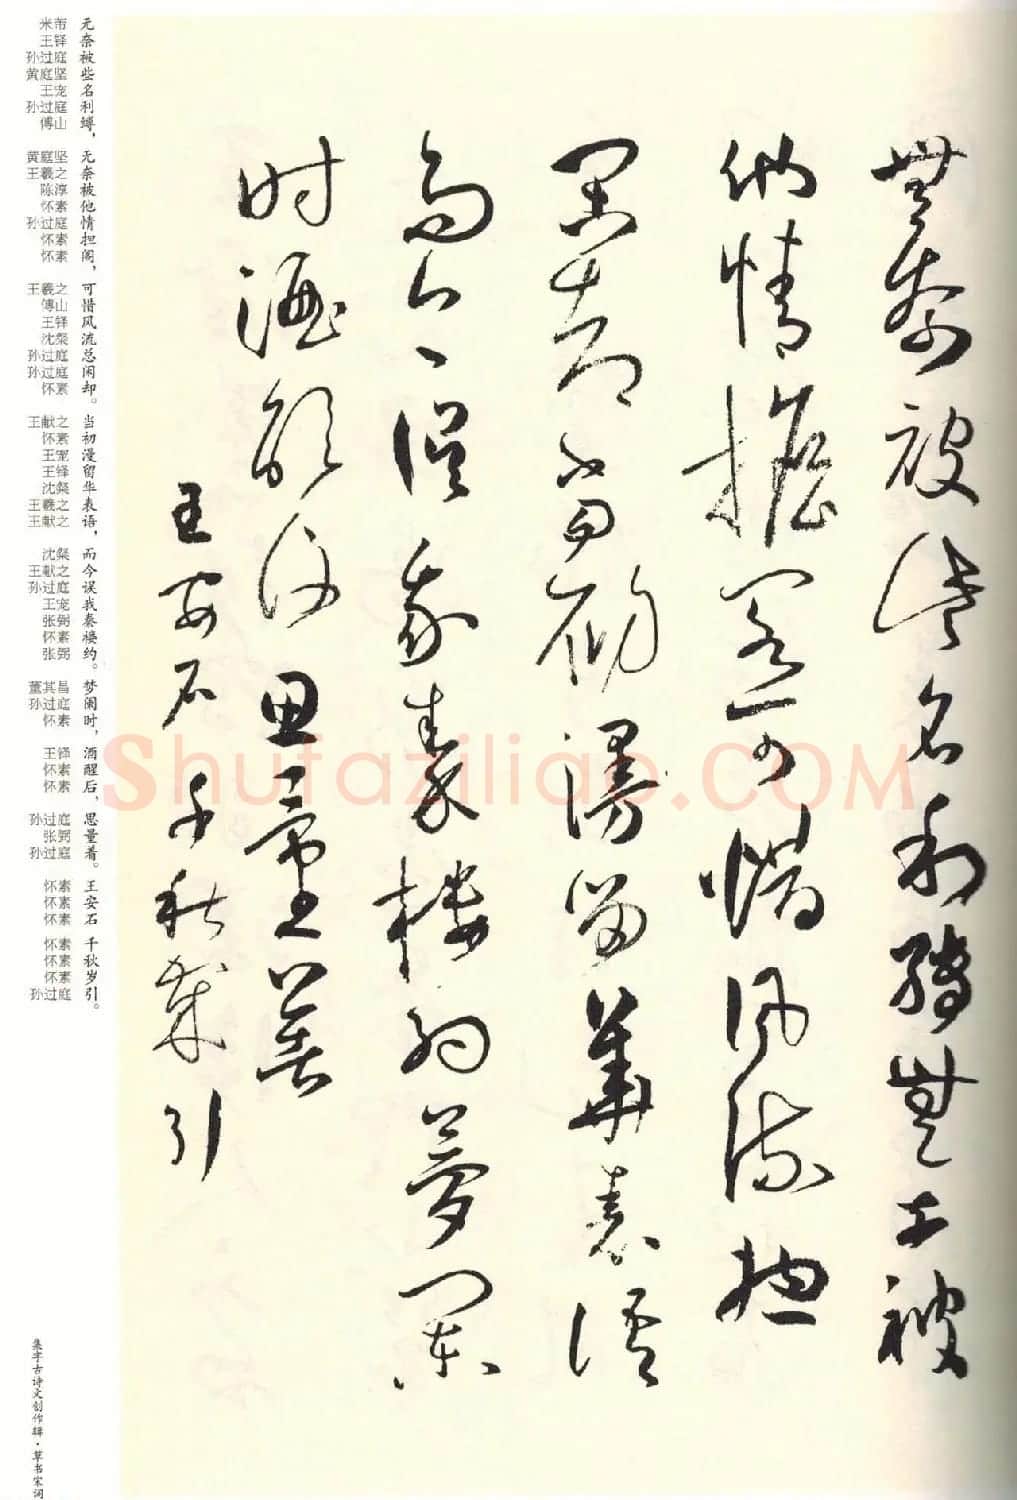 無奈被些名利縛無奈被
他情擔閣可惜風流總
閒却當初漫留華表語
而今誤我秦樓約夢闌
時酒醒後思量着
王安石千秋歲引
无奈被些名利缚，
无奈被他情担阁，
可惜风流总闲却。
当初漫留华表语，
而今误我秦楼约。
梦阑时，
酒醒后，
思量着。
王安石
千秋岁引。
米芾
王铎
孙过庭
黄庭坚
王宠
孙过庭
傅山
黄庭坚
王羲之
陈淳
怀素
孙过庭
怀素
怀素
王羲之
傅山
王铎
沈粲
孙过庭
孙过庭
怀素
王献之
怀素
王宠
王铎
沈粲
王羲之
王献之
沈粲
王献之
孙过庭
王宠
张弼
怀素
张弼
董其昌
孙过庭
怀素
王铎
怀素
怀素
孙过庭
张弼
孙过庭
怀素
怀素
怀素
怀素
怀素
怀素
孙过庭
集字古诗文创作辑·草书宋词
Shufaziliao.COM